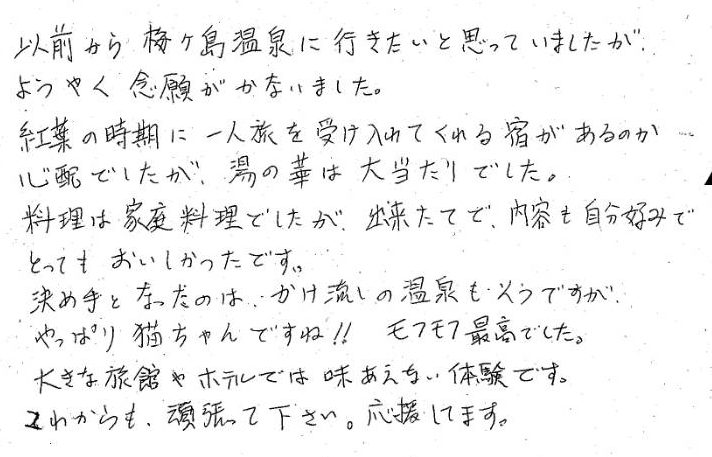 以前から 梅ヶ島温泉に行きたいと思っていましたが、
ようやく 念願がかないました。
紅葉の時期に 一人旅を受け入れてくれる宿があるのか
心配でしたが、湯の華は 大当たりでした。
料理は家庭料理でしたが、出来たてで、内容も自分好みで
とっても おいしかったです。
決め手となったのは、かけ流しの温泉もそうですが、
やっぱり猫ちゃんですね!! モフモフ最高でした。
大きな旅館やホテルでは味あえない体験です。
これからも、頑張って下さい。応援してます。